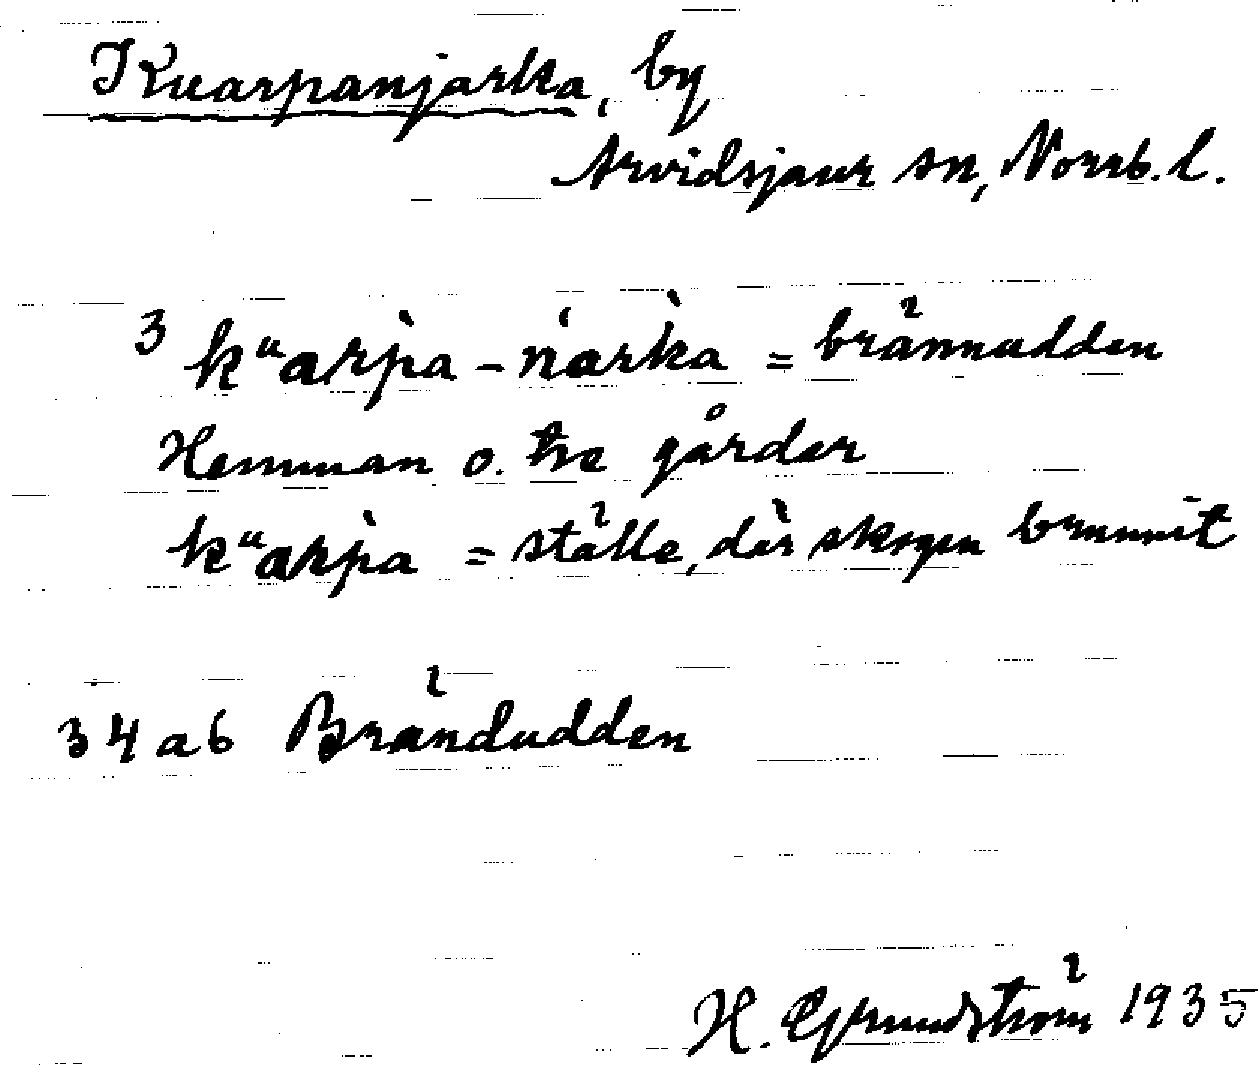 Kuarpanjarka, by
Arvidsjaur sn, Norrb. l.
3 kᵘarpa-ńarka = brännudden
Hemman o. tre gårder
kᵘarpa = ställe, där skogen brunnit
34 a b Brändudden
H. Grundström 1935